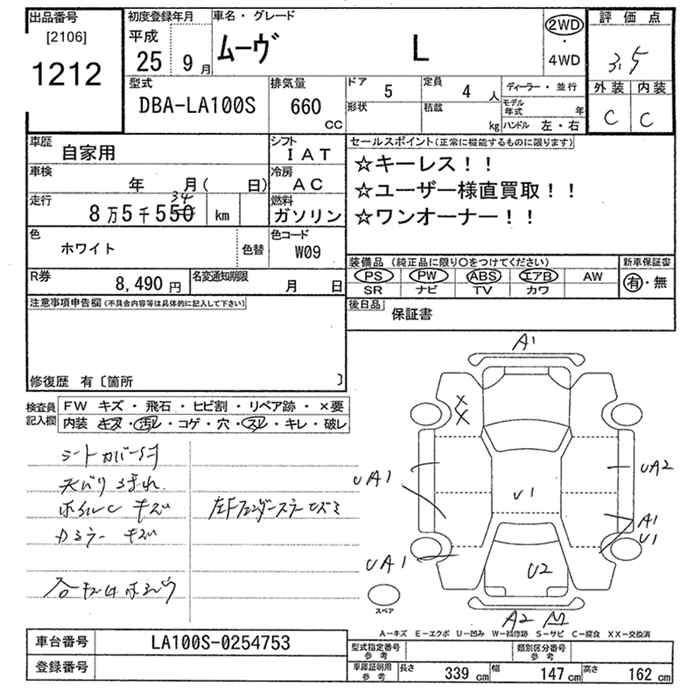 出品番号
[2106]
1212
初度登録年月
平成
25年 9月
車名・グレード
ムーヴ L
2WD
・
4WD
評価点
3.5
外装 内装
C C
型式
DBA-LA100S
排気量
660
CC
ドア 5
形状
定員 4 人
積載 kg
ディーラー・並行
モデル年式 年
ハンドル 左・右
車歴
自家用
シフト
IAT
車検
年 月( 日)
冷房
AC
走行
8万5千550 km
34
燃料
ガソリン
色
ホワイト
色替
色コード
W09
R券
8,490 円
名変通知期限
月 日
セールスポイント(正常に機能するものに限ります)
☆キーレス!!
☆ユーザー様直買取!!
☆ワンオーナー!!
装備品(純正品に限り○をつけてください)
PS PW ABS エアB AW
SR ナビ TV カワ
新車保証書
有・無
後日品
保証書
注意事項申告欄(不具合内容等は具体的に記入して下さい)
修復歴 有〔箇所 〕
検査員
記入欄
FW キズ・飛石・ヒビ割・リペア跡・×要
内装 キズ・汚レ・コゲ・穴・スレ・キレ・破レ
シートカバー付
天バリ
キズ
キズ
左Fフェンダー
A1
X
X
UA1
UA2
U1
A1
U1
UA1
U2
A2
スペア
A-キズ E-エクボ U-凹み W-補修跡 S-サビ C-腐食 XX-交換済
車台番号
LA100S-0254753
登録番号
型式指定番号
参考
類別区分番号
参考
車庫証明用
参考
長さ 339 cm 幅 147 cm 高さ 162 cm